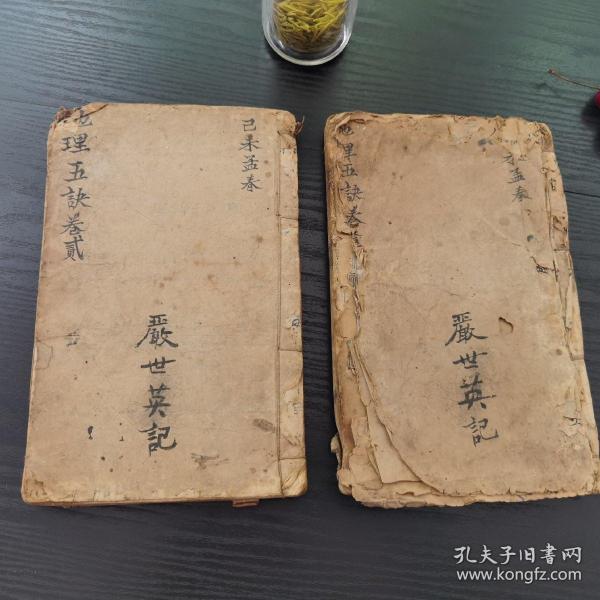 地理五訣卷貳
己未孟春
嚴世英記
地理五訣卷
孟春
嚴世英記
孔夫子旧書网
www.kongfz.com